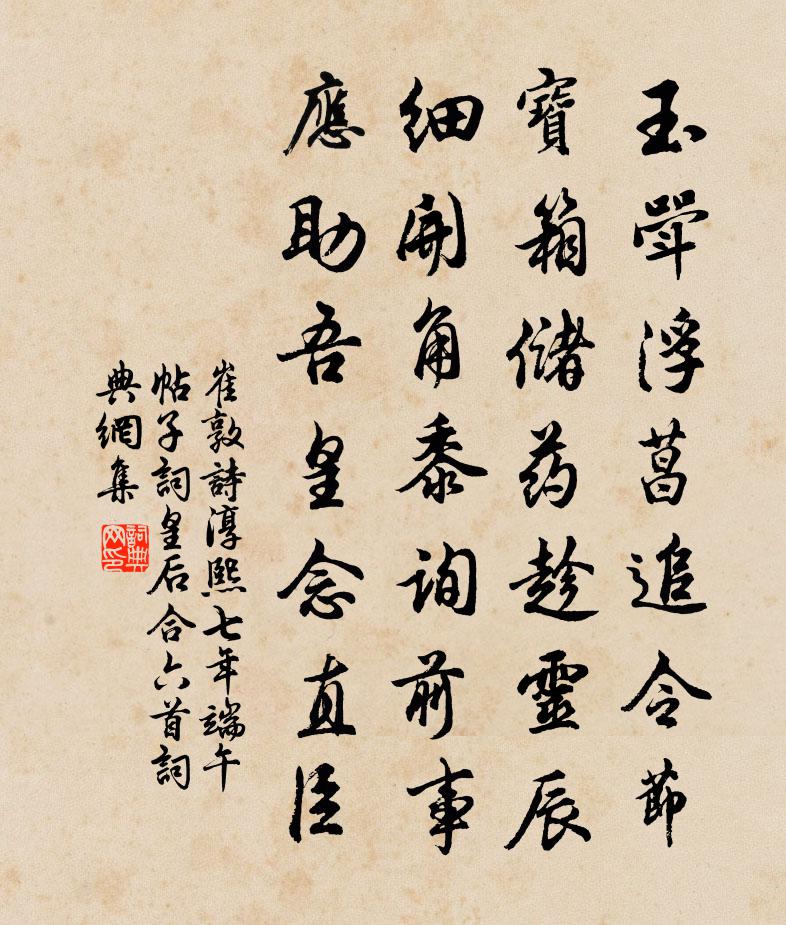 玉斝浮菖追令節
寶箱儲药趁靈辰
細開角黍詢前事
應助吾皇念直臣
崔敦詩淳熙七年端午
帖子詞皇后合六首詞
典網集
詞典
网印